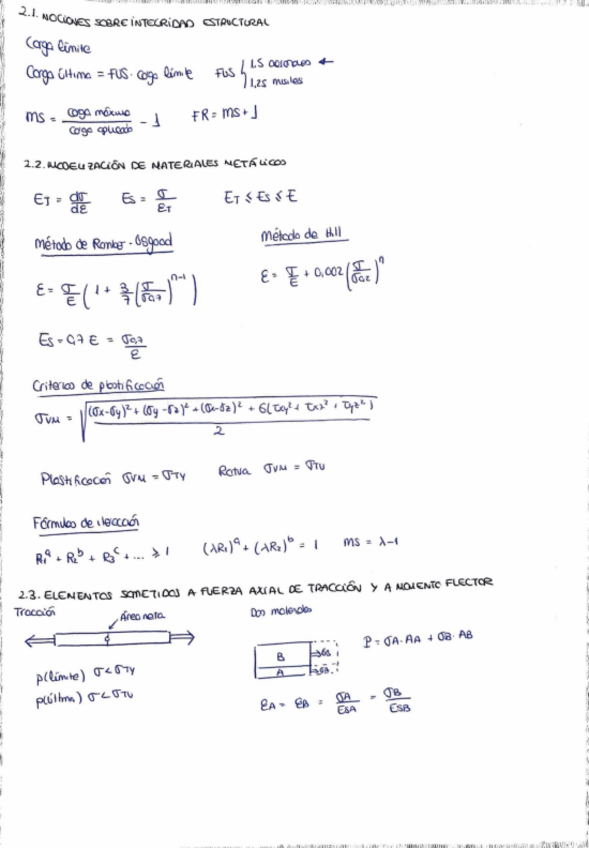 2.1. NOCIONES SOBRE INTEGRIDAD ESTRUCTURAL
Carga límite
Carga última = FUS · carga límite FUS { 1,5 aeronaves ←
1,25 misiles
MS = carga máxima / carga aplicada - 1 FR = MS + 1
2.2. MODELIZACIÓN DE MATERIALES METÁLICOS
ET = dσ/dε Es = σ/εT ET ≤ Es ≤ E
Método de Ramber - Osgood Método de Hill
ε = σ/E (1 + 3/7 (σ/σ0,7)^n-1) ε = σ/E + 0,002 (σ/σ0,2)^n
Es = 0,7 E = σ0,7/ε
Criterios de plastificación
σVM = √(((σx-σy)² + (σy-σz)² + (σx-σz)² + 6(τxy² + τxz² + τyz²))/2)
Plastificación σVM = σTY Rotura σVM = σTU
Fórmulas de iteracción
R1^a + R2^b + R3^c + ... ≥ 1 (λR1)^a + (λR2)^b = 1 MS = λ-1
2.3. ELEMENTOS SOMETIDOS A FUERZA AXIAL DE TRACCIÓN Y A MOMENTO FLECTOR
Tracción Área neta Dos materiales
B σB P = σA · AA + σB · AB
A
p(límite) σ < σTY
p(última) σ < σTU
εA = εB = σA/ESA = σB/ESB